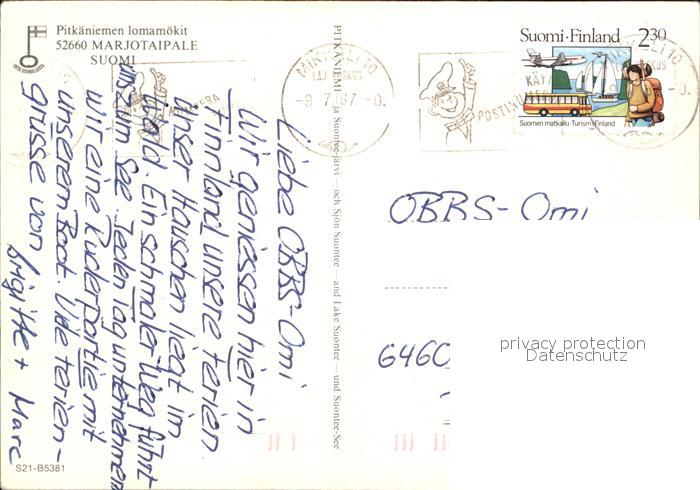 Pitkäniemen lomamökit
52660 MARJOTAIPALE
SUOMI
MIKKELI 10
-9.7.87-0.
Suomi-Finland 2,30
Suomen matkailu·Turism i Finland
PITKÄNIEMI ja Suontee-järvi — och Sjön Suontee — and Lake Suontee — und Suontee-See
Liebe OBBS-Omi
Wir geniessen hier in
Finnland unsere Ferien.
Unser Häuschen liegt im
Wald. Ein schmaler Weg führt
uns zum See. Jeden Tag unternehmen
wir eine Ruderpartie mit
unserem Boot. Viele Ferien-
grüsse von
Brigitte + Marc
OBBS-Omi
6460
privacy protection
Datenschutz
S21-B5381